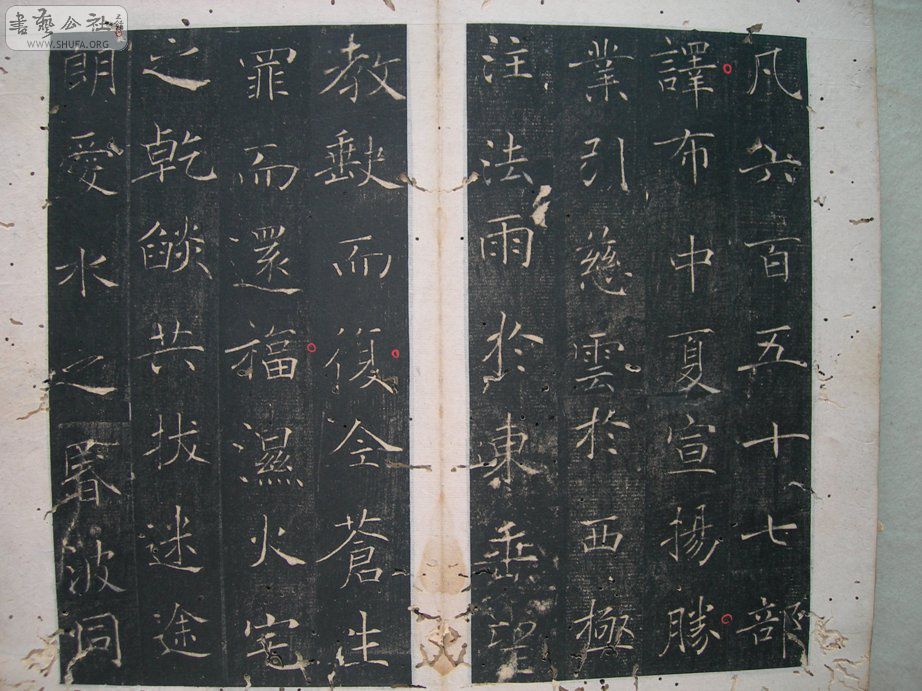 書藝公社
WWW.SHUFA.ORG
凡六百五十七部
譯布中夏宣揚勝
業引慈雲於西極
注法雨於東垂聖
教缺而復全蒼生
罪而還福濕火宅
之乾燄共拔迷途
朗愛水之昬波同